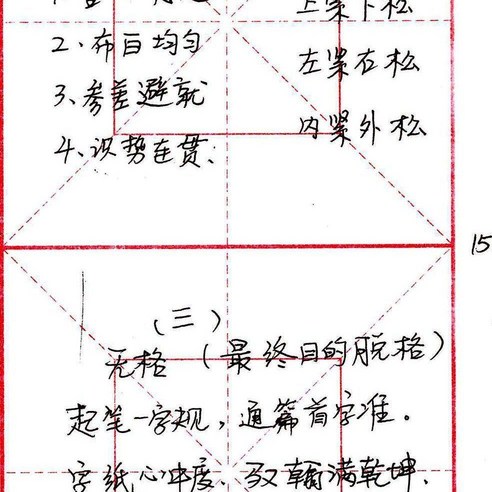 上紧下松
2、布白均匀
左紧右松
3、参差避就
内紧外松
4、识势连贯:
15
（三）
无格（最终目的脱格）
起笔一字规，通篇首字准。
字纸心中度，翰满乾坤.